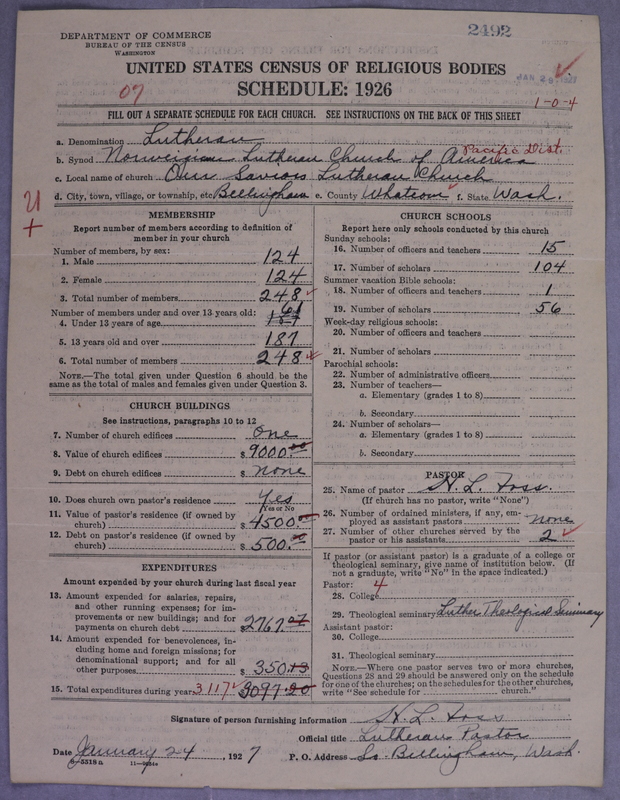 DEPARTMENT OF COMMERCE
BUREAU OF THE CENSUS
WASHINGTON
2492
UNITED STATES CENSUS OF RELIGIOUS BODIES
JAN 29 1927
SCHEDULE: 1926
07
1-0-4
FILL OUT A SEPARATE SCHEDULE FOR EACH CHURCH. SEE INSTRUCTIONS ON THE BACK OF THIS SHEET
a. Denomination Lutheran
b. Synod Norwegian Lutheran Church of America Pacific Dist.
c. Local name of church Our Saviors Lutheran Church
d. City, town, village, or township, etc. Bellingham e. County Whatcom f. State Wash.
MEMBERSHIP
Report number of members according to definition of
member in your church
Number of members, by sex:
1. Male 124
2. Female 124
3. Total number of members 248
Number of members under and over 13 years old: 61
4. Under 13 years of age 187
5. 13 years old and over 187
6. Total number of members 248
NOTE.—The total given under Question 6 should be the
same as the total of males and females given under Question 3.
CHURCH BUILDINGS
See instructions, paragraphs 10 to 12
7. Number of church edifices One
8. Value of church edifices $ 9000.00
9. Debt on church edifices $ None
10. Does church own pastor's residence Yes
Yes or No
11. Value of pastor's residence (if owned by
church) $ 4500.00
12. Debt on pastor's residence (if owned by
church) $ 500.00
EXPENDITURES
Amount expended by your church during last fiscal year
13. Amount expended for salaries, repairs,
and other running expenses; for im-
provements or new buildings; and for
payments on church debt 2767.07
14. Amount expended for benevolences, in-
cluding home and foreign missions; for
denominational support; and for all
other purposes $ 350.13
15. Total expenditures during year 3117 3097.20
CHURCH SCHOOLS
Report here only schools conducted by this church
Sunday schools:
16. Number of officers and teachers 15
17. Number of scholars 104
Summer vacation Bible schools:
18. Number of officers and teachers 1
19. Number of scholars 56
Week-day religious schools:
20. Number of officers and teachers
21. Number of scholars
Parochial schools:
22. Number of administrative officers
23. Number of teachers—
a. Elementary (grades 1 to 8)
b. Secondary
24. Number of scholars—
a. Elementary (grades 1 to 8)
b. Secondary
PASTOR
25. Name of pastor H. L. Foss.
(If church has no pastor, write "None")
26. Number of ordained ministers, if any, em-
ployed as assistant pastors none
27. Number of other churches served by the
pastor or his assistants 2
If pastor (or assistant pastor) is a graduate of a college or
theological seminary, give name of institution below. (If
not a graduate, write "No" in the space indicated.)
Pastor: 4
28. College
29. Theological seminary Luther Theological Seminary
Assistant pastor:
30. College
31. Theological seminary
NOTE.—Where one pastor serves two or more churches,
Questions 28 and 29 should be answered only on the schedule
for one of the churches; on the schedules for the other churches,
write "See schedule for church."
Signature of person furnishing information H. L. Foss
Official title Lutheran Pastor
Date January 24, 1927 P. O. Address So. Bellingham, Wash.
8—5518a